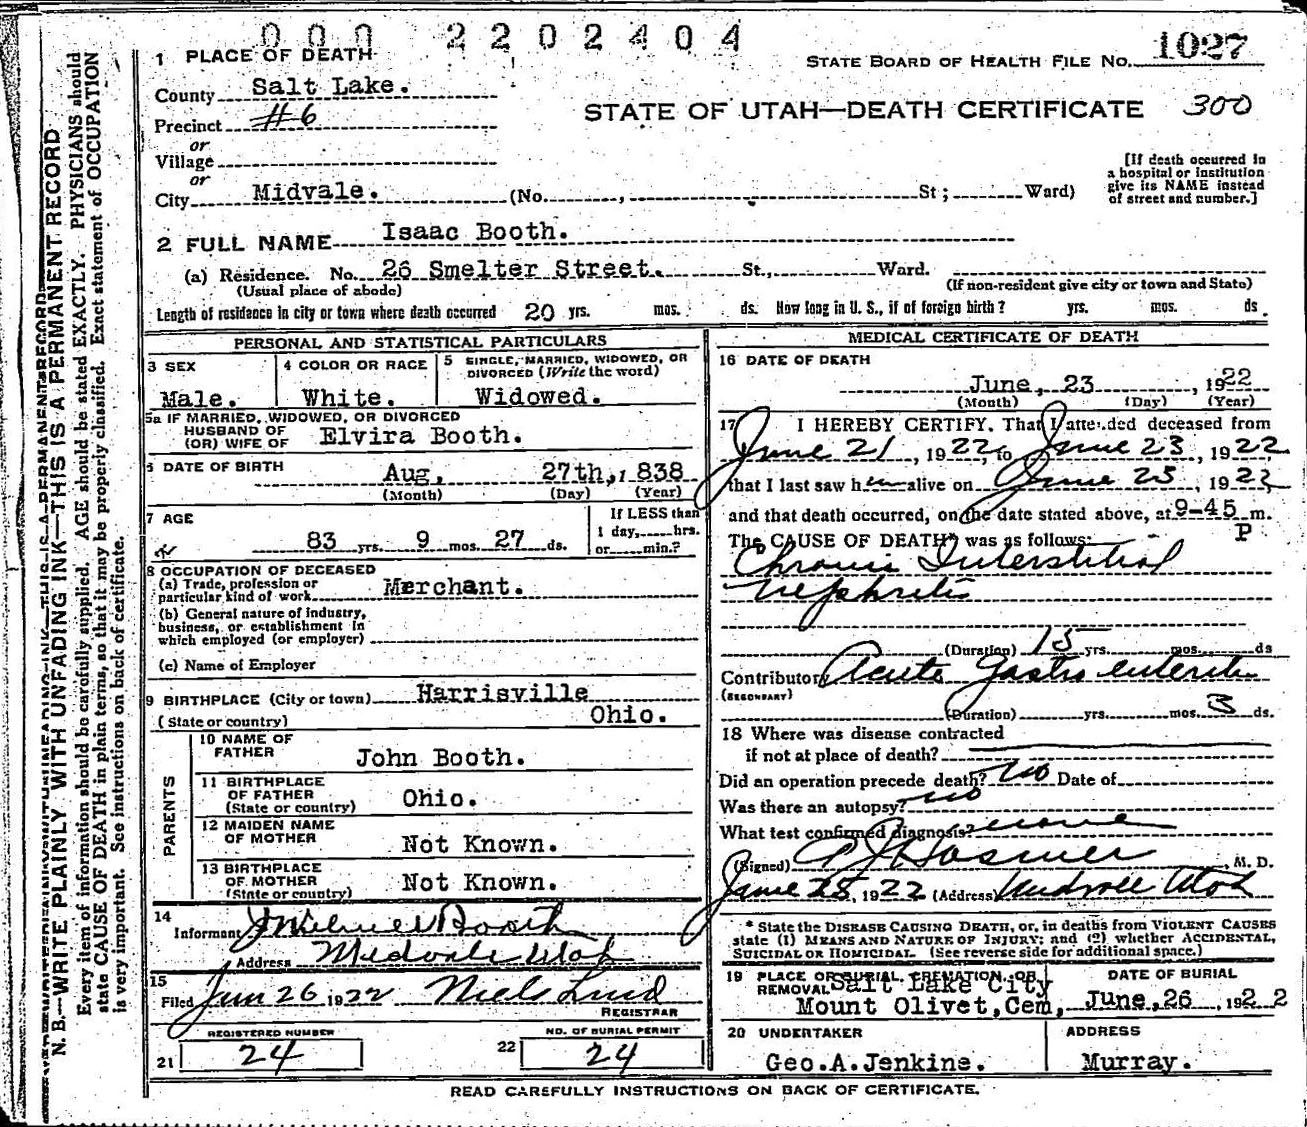 000 2202404
1 PLACE OF DEATH
STATE BOARD OF HEALTH FILE NO. 1027
County Salt Lake.
STATE OF UTAH—DEATH CERTIFICATE 300
Precinct #6
or
Village
or
City Midvale. (No. , St; Ward)
[If death occurred in
a hospital or institution
give its NAME instead
of street and number.]
2 FULL NAME Isaac Booth.
(a) Residence. No. 26 Smelter Street. St., Ward.
(Usual place of abode)
(If non-resident give city or town and State)
Length of residence in city or town where death occurred 20 yrs. mos. ds. How long in U. S., if of foreign birth? yrs. mos. ds.
PERSONAL AND STATISTICAL PARTICULARS
3 SEX
Male.
4 COLOR OR RACE
White.
5 SINGLE, MARRIED, WIDOWED, OR
DIVORCED (Write the word)
Widowed.
5a IF MARRIED, WIDOWED, OR DIVORCED
HUSBAND OF
(OR) WIFE OF Elvira Booth.
6 DATE OF BIRTH
Aug. 27th, 1838
(Month) (Day) (Year)
7 AGE
83 yrs. 9 mos. 27 ds.
If LESS than
1 day, hrs.
or min.?
8 OCCUPATION OF DECEASED
(a) Trade, profession or
particular kind of work Merchant.
(b) General nature of industry,
business, or establishment in
which employed (or employer)
(c) Name of Employer
9 BIRTHPLACE (City or town) Harrisville
(State or country) Ohio.
PARENTS
10 NAME OF
FATHER John Booth.
11 BIRTHPLACE
OF FATHER
(State or country) Ohio.
12 MAIDEN NAME
OF MOTHER Not Known.
13 BIRTHPLACE
OF MOTHER
(State or country) Not Known.
14
Informant Booth
Address Midvale Utah
15
Filed Jun 26 1922 Niels Lind
REGISTRAR
REGISTERED NUMBER
21 24
NO. OF BURIAL PERMIT
22 24
MEDICAL CERTIFICATE OF DEATH
16 DATE OF DEATH
June, 23 , 1922
(Month) (Day) (Year)
17 I HEREBY CERTIFY, That I attended deceased from
June 21, 1922, to June 23, 1922
that I last saw him alive on June 23, 1922
and that death occurred, on the date stated above, at 9-45 m.
P
The CAUSE OF DEATH* was as follows:
Chronic Interstitial
Nephritis
(Duration) 15 yrs. mos. ds
Contributory Acute Gastro enteritis
(SECONDARY)
(Duration) yrs. mos. 3 ds.
18 Where was disease contracted
if not at place of death?
Did an operation precede death? no Date of
Was there an autopsy? no
What test confirmed diagnosis? none
(Signed) Hosmer, M. D.
June 25, 1922 (Address) Midvale Utah
* State the DISEASE CAUSING DEATH, or, in deaths from VIOLENT CAUSES
state (1) MEANS AND NATURE OF INJURY; and (2) whether ACCIDENTAL,
SUICIDAL OR HOMICIDAL. (See reverse side for additional space.)
19 PLACE OF BURIAL, CREMATION, OR
REMOVAL Salt Lake City
Mount Olivet, Cem,
DATE OF BURIAL
June, 26 , 1922
20 UNDERTAKER
Geo.A.Jenkins.
ADDRESS
Murray.
READ CAREFULLY INSTRUCTIONS ON BACK OF CERTIFICATE.
N. B.—WRITE PLAINLY WITH UNFADING INK—THIS IS A PERMANENT RECORD
Every item of information should be carefully supplied. AGE should be stated EXACTLY. PHYSICIANS should
state CAUSE OF DEATH in plain terms, so that it may be properly classified. Exact statement of OCCUPATION
is very important. See instructions on back of certificate.